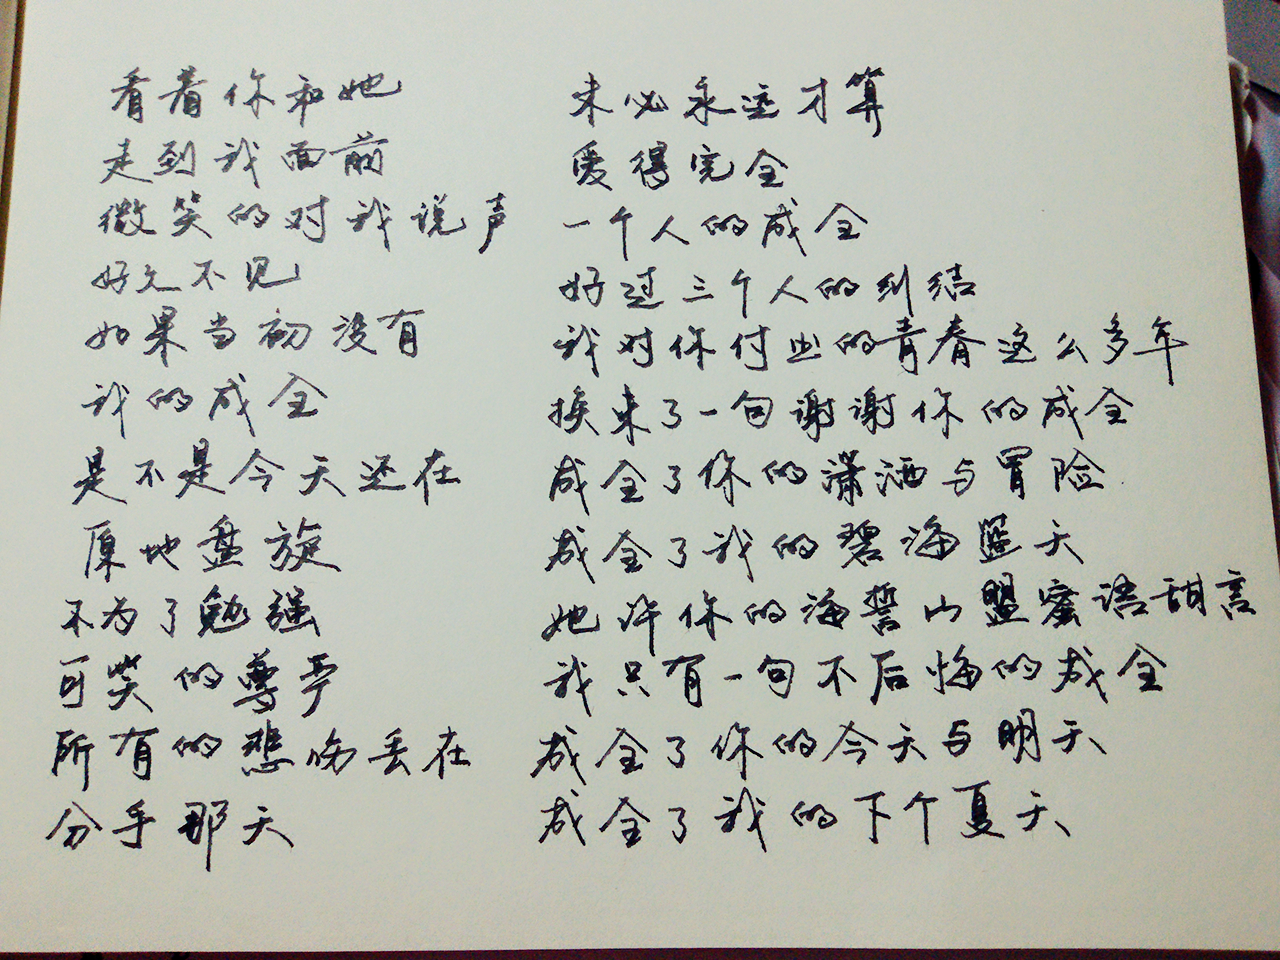 看着你和她
走到我面前
微笑的对我说声
好久不见
如果当初没有
我的成全
是不是今天还在
原地盘旋
不为了勉强
可笑的尊严
所有的悲伤丢在
分手那天
未必永远才算
爱得完全
一个人的成全
好过三个人的纠结
我对你付出的青春这么多年
换来了一句谢谢你的成全
成全了你的潇洒与冒险
成全了我的碧海蓝天
她许你的海誓山盟蜜语甜言
我只有一句不后悔的成全
成全了你的今天与明天
成全了我的下个夏天